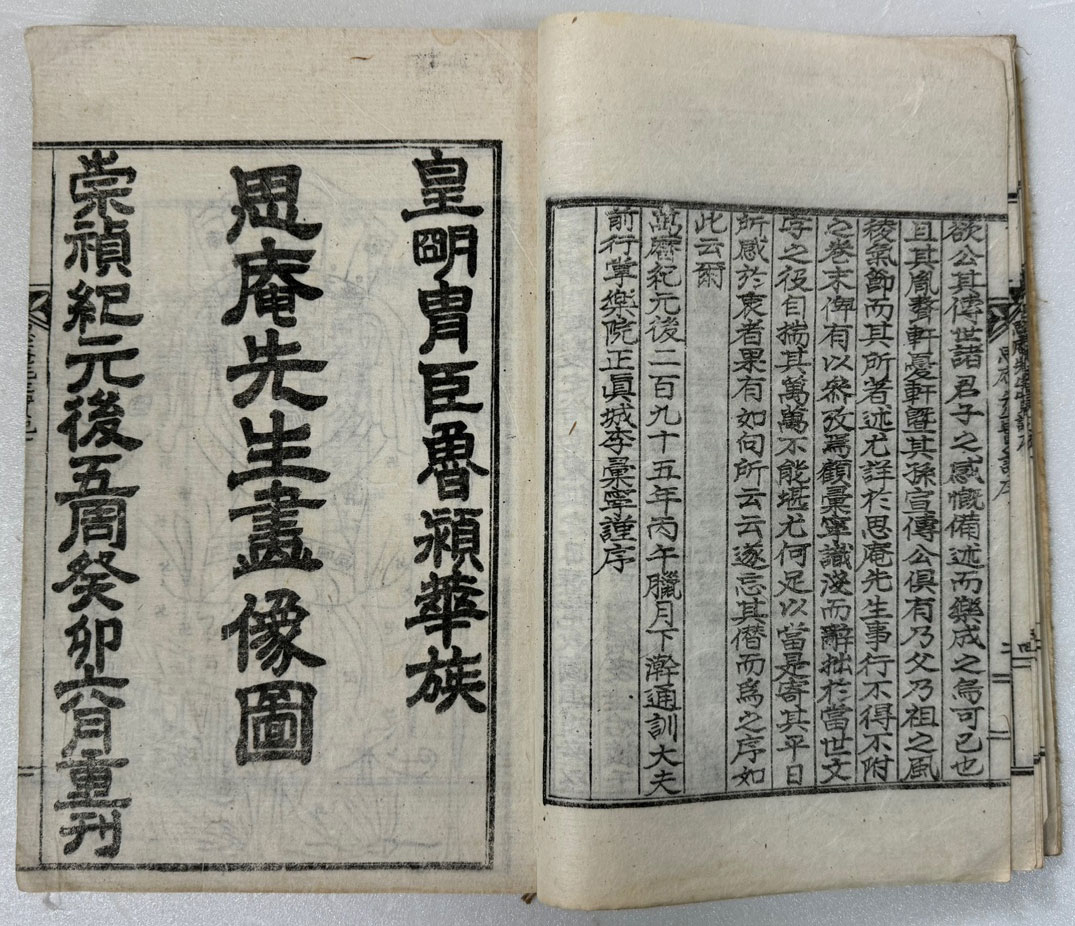 欲公其傳世諸君子之感慨備述而樂成之烏可已也
且其胤聱軒憂軒曁其孫宣傳公俱有乃父乃祖之風
稜氣節而其所著述尤詳於思庵先生事行不得不附
之卷末俾有以叅攷焉顧彙寧識淺而辭拙於當世文
字之役自揣其萬萬不能堪尤何足以當是寄其平日
所感於衷者果有如向所云云遂忘其僭而爲之序如
此云爾
萬曆紀元後二百九十五年丙午臘月下澣通訓大夫
前行掌樂院正眞城李彙寧謹序
皇明胄臣魯潁華族
思庵先生畫像圖
崇禎紀元後五周癸卯六月重刊